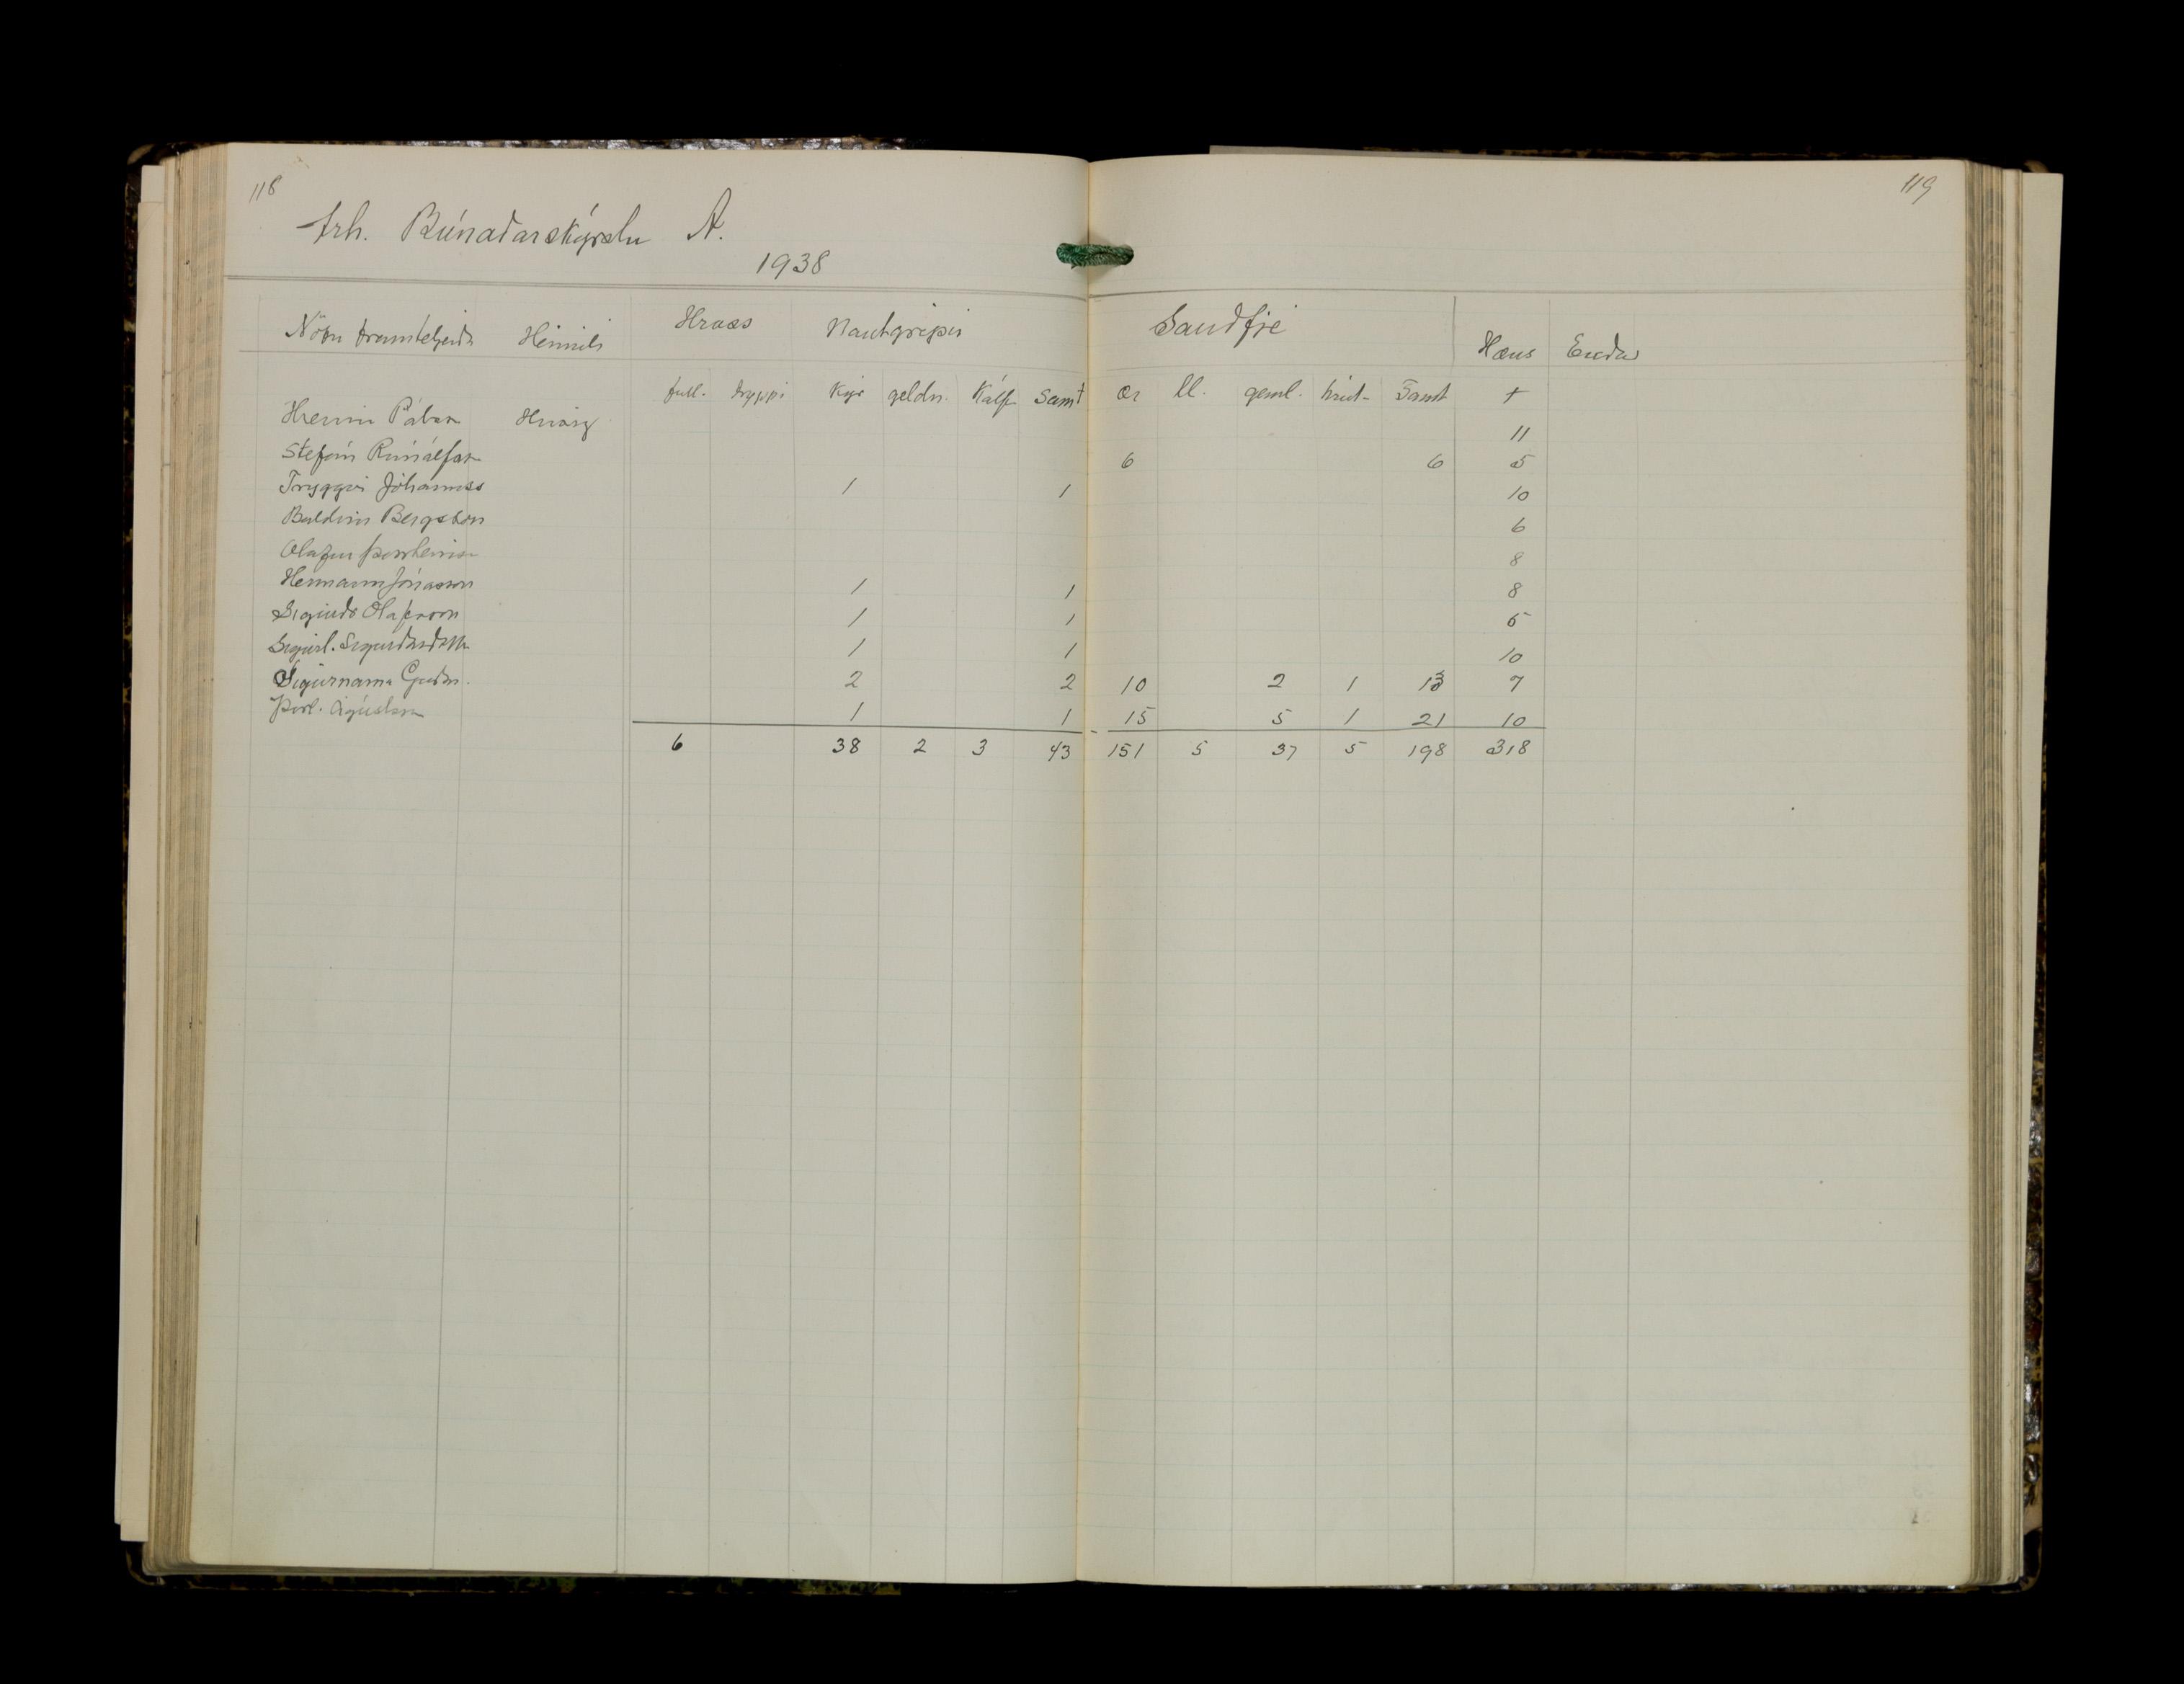 118
119
frh. Búnaðarskýrslu A.
1938
Nöfn framteljenda Heimili Hross Nautgripir Sauðfje Hæns Endur
full. tryppi kýr geldn. Kálf Samt ær ll. geml. hrút. Samt +
Hvammst
11
Stefán Runólfss 6 6 5
Tryggvi Jóhannss 1 1 10
Baldvin Bergsson 6
Ólafur 8
Hermann Jónasson 1 1 8
Sigurdr Olafsson 1 1 5
Sigurl. Sigurðard 1 1 10
Sigurnanna Guðm. 2 2 10 2 1 13 7
Þorl. Ágústsson 1 1 15 5 1 21 10
6 38 2 3 43 151 5 37 5 198 318